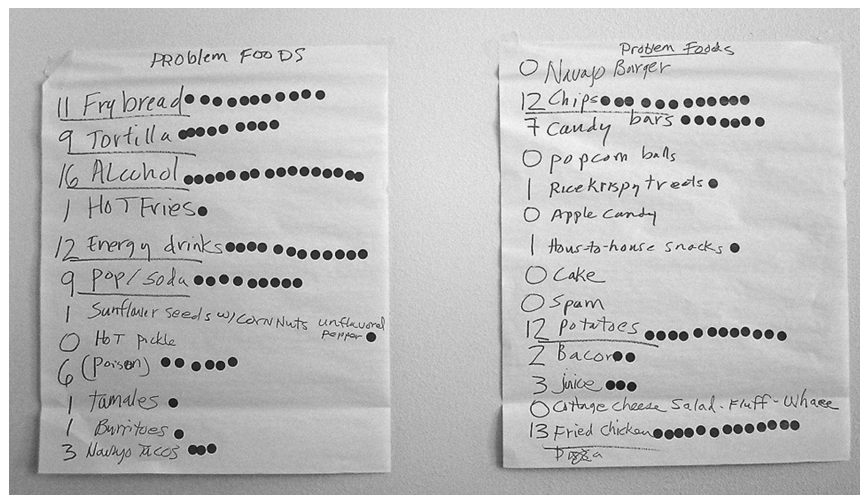 PROBLEM FOODS
11 Frybread
9 Tortilla
16 ALcohol
1 HOT Fries
12 Energy drinks
9 Pop/soda
1 Sunflower seeds w/CORN Nuts unflavored
pepper
0 HoT Pickle
6 (Poison)
1 tamales
1 Burritoes
3 Navajo Tacos
Problem Foods
0 Navajo Burger
12 Chips
7 Candy bars
0 popcorn balls
1 Rice Krispy treets
0 Apple Candy
1 Hous-to-house snacks
0 Cake
0 Spam
12 Potatoes
2 Bacon
3 juice
0 Cottage Cheese Salad - Fluff -
13 Fried Chicken